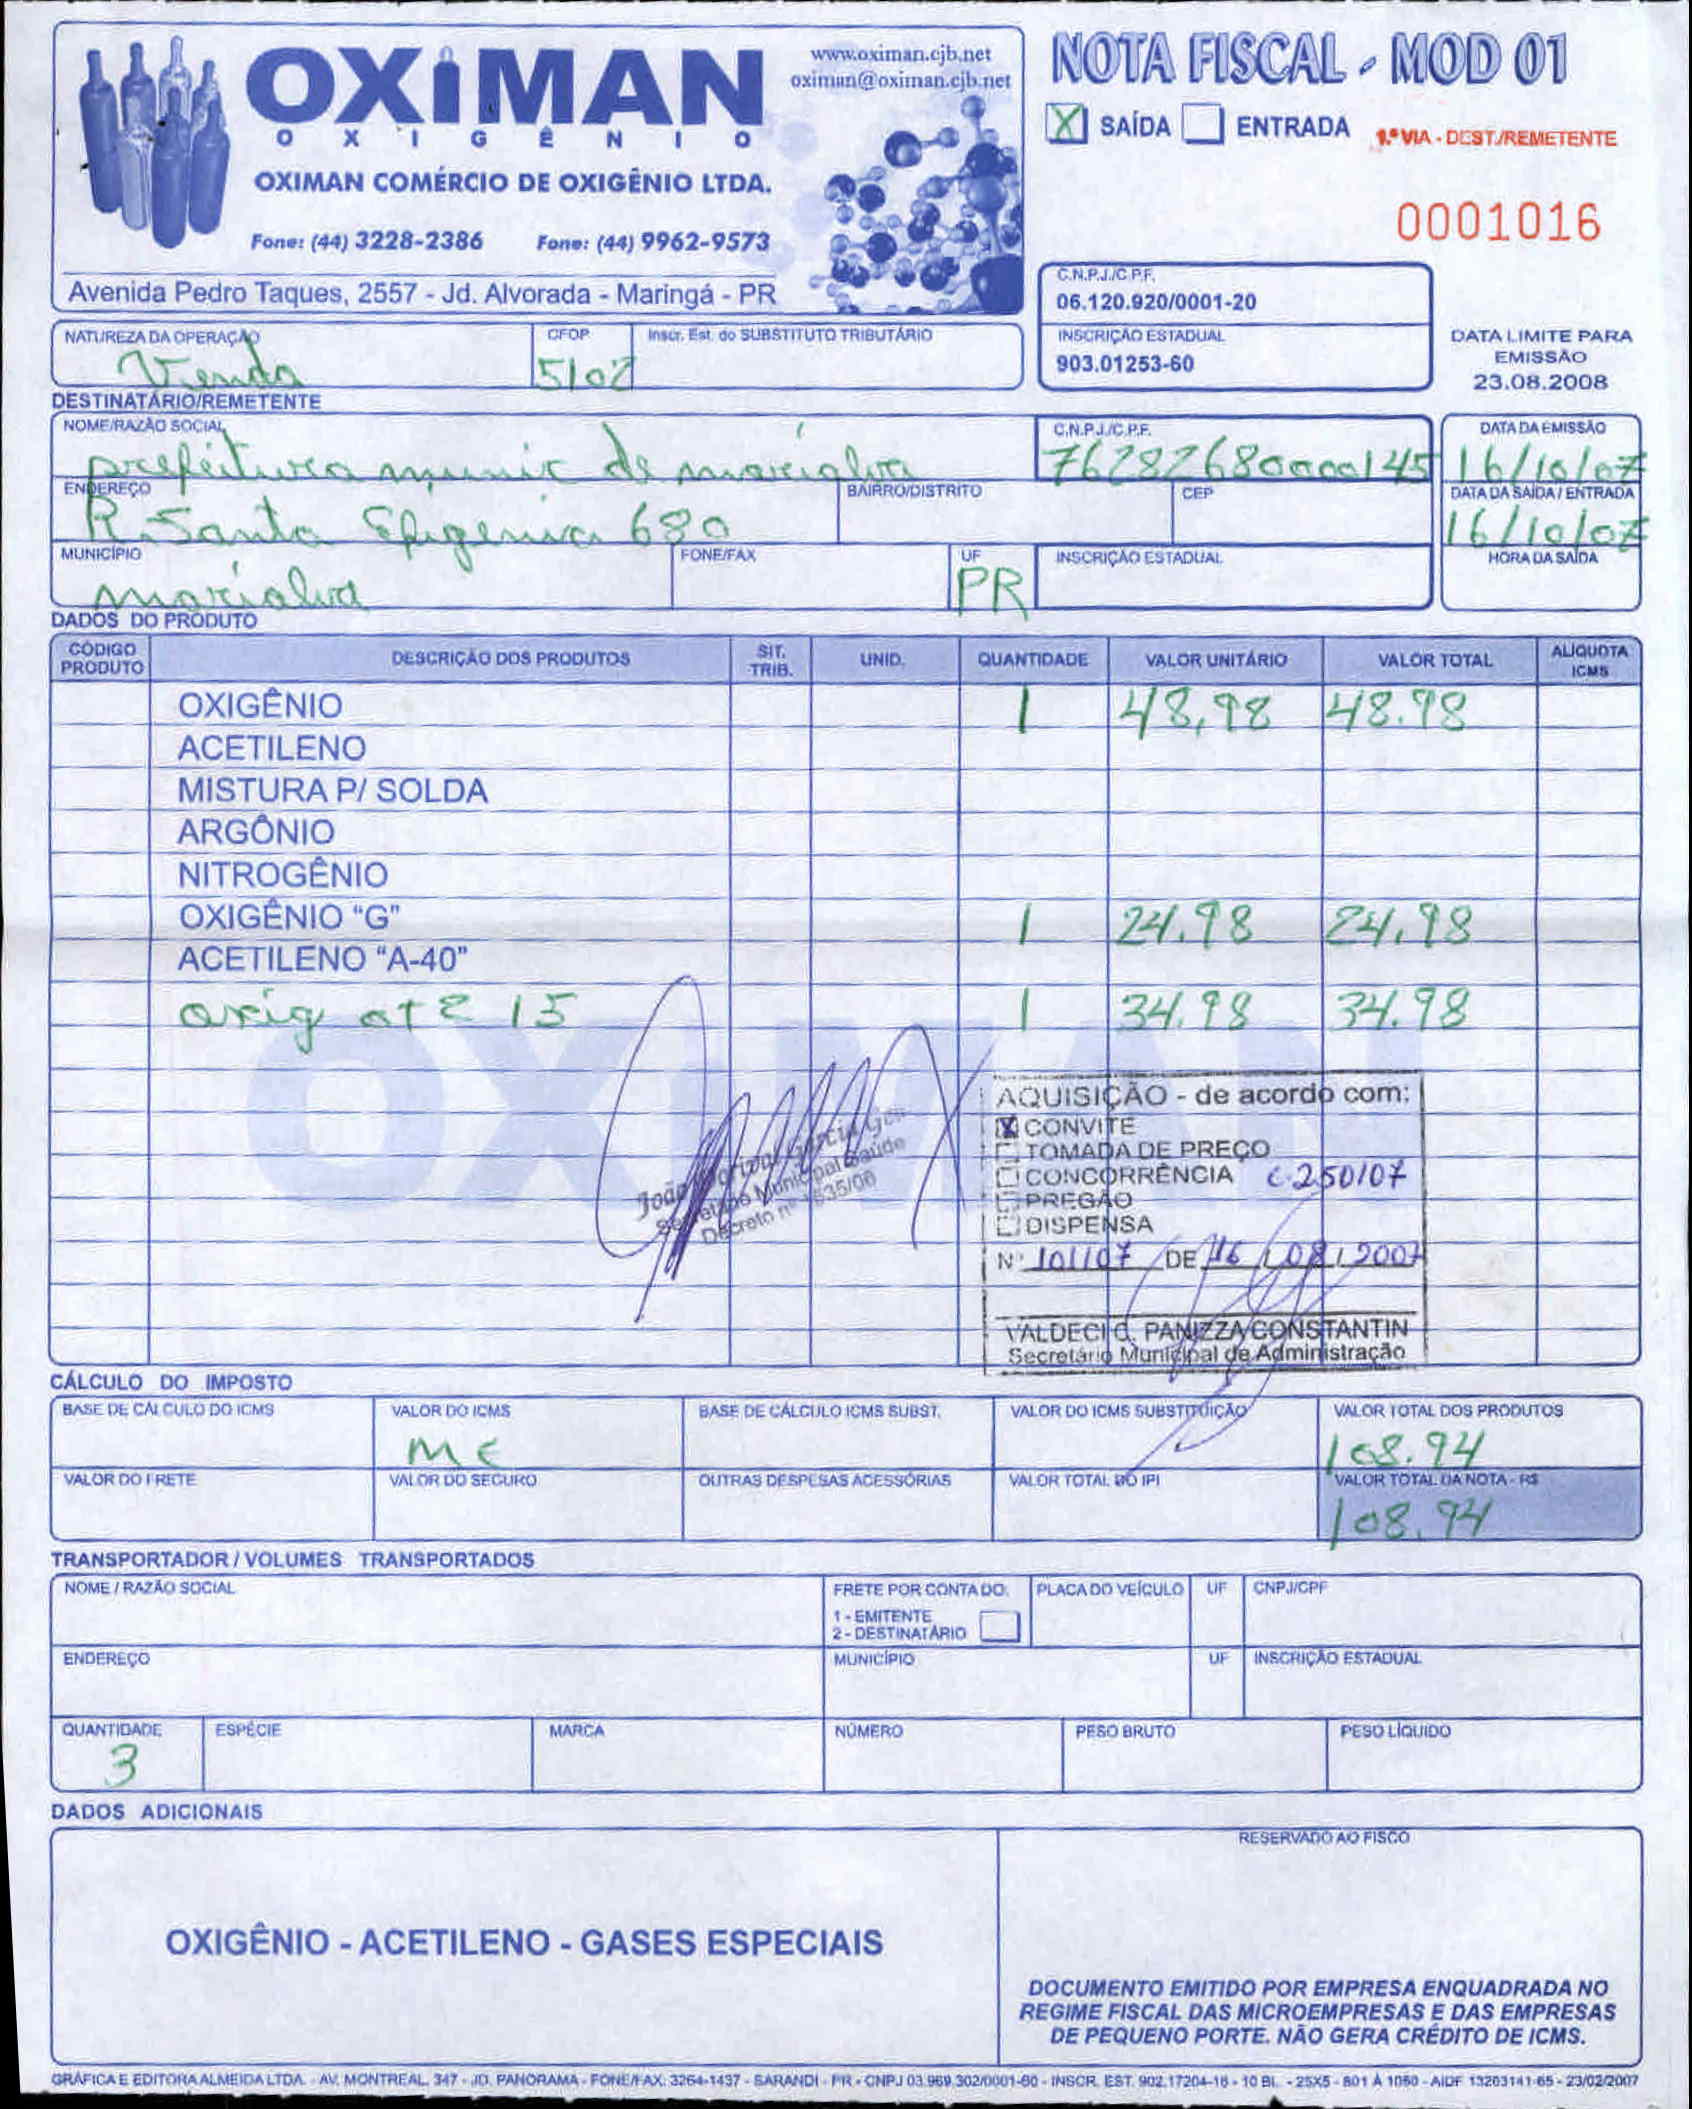 OXIMAN
OXIGÊNIO
www.oximan.cjb.net
oximan@oximan.cjb.net
OXIMAN COMÉRCIO DE OXIGÊNIO LTDA.
Fone: (44) 3228-2386 Fone: (44) 9962-9573
Avenida Pedro Taques, 2557 - Jd. Alvorada - Maringá - PR
NOTA FISCAL - MOD 01
X SAÍDA ENTRADA 1.ª VIA - DEST./REMETENTE
0001016
C.N.P.J./C.P.F.
06.120.920/0001-20
INSCRIÇÃO ESTADUAL
903.01253-60
DATA LIMITE PARA
EMISSÃO
23.08.2008
NATUREZA DA OPERAÇÃO CFOP Inscr. Est. do SUBSTITUTO TRIBUTÁRIO
Venda 5102
DESTINATÁRIO/REMETENTE
NOME/RAZÃO SOCIAL C.N.P.J./C.P.F. DATA DA EMISSÃO
prefeitura munic de marialva 76282680000145 16/10/07
ENDEREÇO BAIRRO/DISTRITO CEP DATA DA SAÍDA / ENTRADA
R. Santa Efigenia 680 16/10/07
MUNICÍPIO FONE/FAX UF INSCRIÇÃO ESTADUAL HORA DA SAÍDA
marialva PR
DADOS DO PRODUTO
CÓDIGO PRODUTO DESCRIÇÃO DOS PRODUTOS SIT. TRIB. UNID. QUANTIDADE VALOR UNITÁRIO VALOR TOTAL ALIQUOTA ICMS
OXIGÊNIO 1 48,98 48.98
ACETILENO
MISTURA P/ SOLDA
ARGÔNIO
NITROGÊNIO
OXIGÊNIO "G" 1 24.98 24.98
ACETILENO "A-40"
oxig até 15 1 34.98 34.98
OXIMAN
Secretário Municipal Saúde
AQUISIÇÃO - de acordo com:
X CONVITE
TOMADA DE PREÇO
CONCORRÊNCIA C.250/07
PREGÃO
DISPENSA
Nº 101/07 DE 16 / 08 / 2007
VALDECI C. PANIZZA CONSTANTIN
Secretário Municipal de Administração
CÁLCULO DO IMPOSTO
BASE DE CÁLCULO DO ICMS VALOR DO ICMS BASE DE CÁLCULO ICMS SUBST. VALOR DO ICMS SUBSTITUIÇÃO VALOR TOTAL DOS PRODUTOS
ME 108.94
VALOR DO FRETE VALOR DO SEGURO OUTRAS DESPESAS ACESSÓRIAS VALOR TOTAL DO IPI VALOR TOTAL DA NOTA - R$
108.94
TRANSPORTADOR / VOLUMES TRANSPORTADOS
NOME / RAZÃO SOCIAL FRETE POR CONTA DO: PLACA DO VEÍCULO UF CNPJ/CPF
1 - EMITENTE
2 - DESTINATÁRIO
ENDEREÇO MUNICÍPIO UF INSCRIÇÃO ESTADUAL
QUANTIDADE ESPÉCIE MARCA NÚMERO PESO BRUTO PESO LÍQUIDO
3
DADOS ADICIONAIS
RESERVADO AO FISCO
OXIGÊNIO - ACETILENO - GASES ESPECIAIS
DOCUMENTO EMITIDO POR EMPRESA ENQUADRADA NO
REGIME FISCAL DAS MICROEMPRESAS E DAS EMPRESAS
DE PEQUENO PORTE. NÃO GERA CRÉDITO DE ICMS.
GRÁFICA E EDITORA ALMEIDA LTDA. - AV. MONTREAL, 347 - JD. PANORAMA - FONE/FAX: 3264-1437 - SARANDI - PR - CNPJ 03.969.302/0001-60 - INSCR. EST. 902.17204-16 - 10 BL. - 25X5 - 801 À 1050 - AIDF 13203141-65 - 23/02/2007